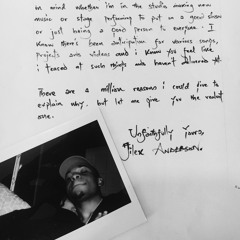 on mind whether i'm in the studio making new
music or stage performing to put on a good show
or just being a good person to everyone. I
know there's been anticipation for various songs,
projects and videos and i know you feel like
i teased at such things and haven't delivered yet
There are a million reasons i could give to
explain why. but let me give you the realest
one.
Unfaithfully yours,
Jilex ANDERSON.